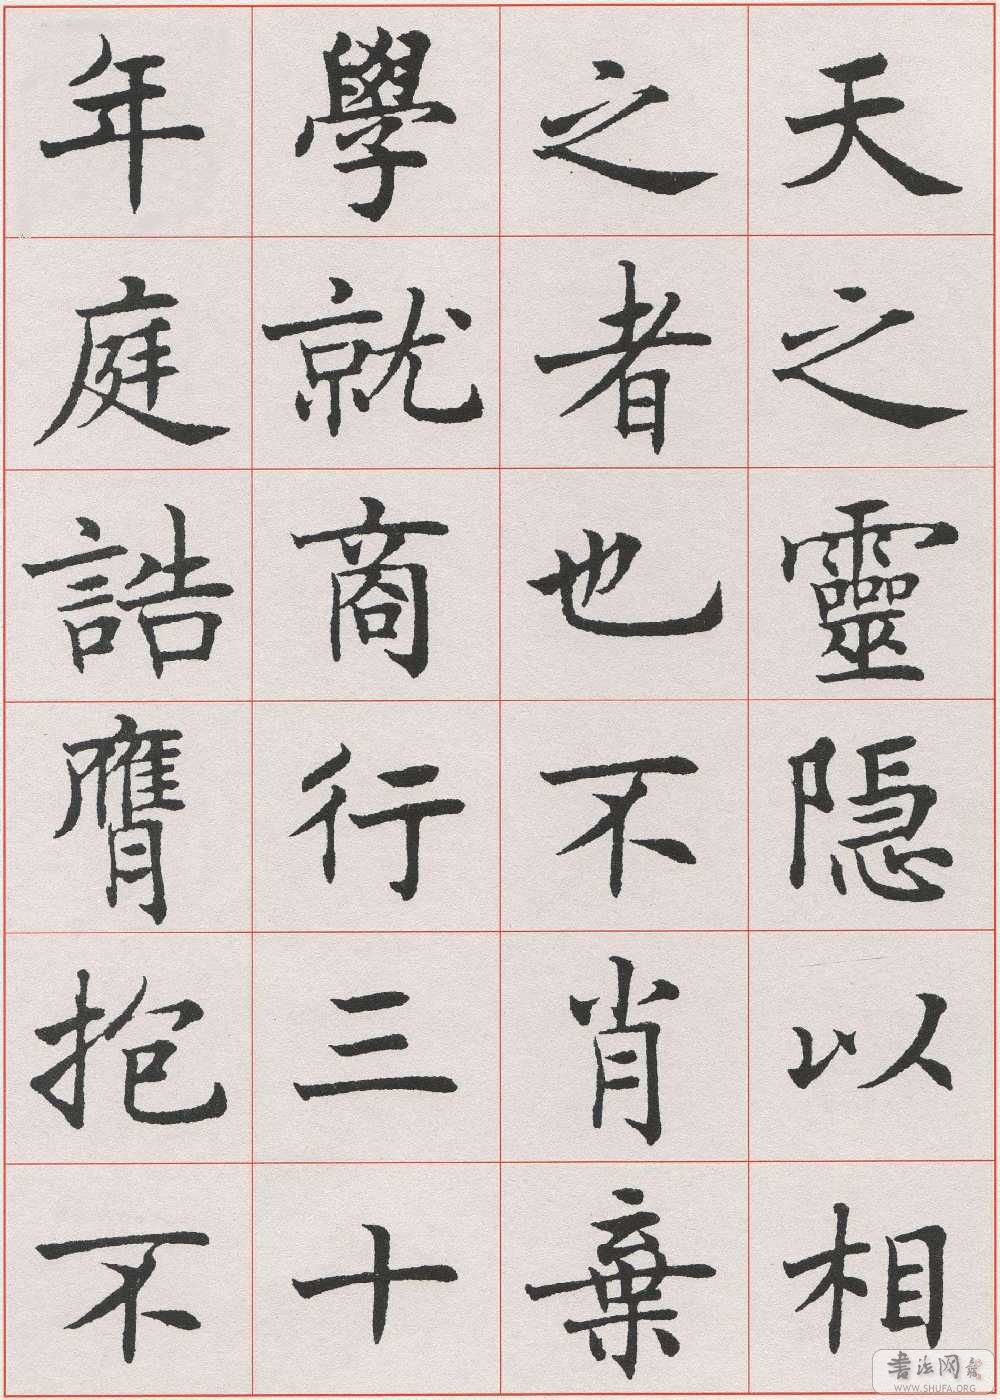 天之靈隱以相
之者也不肖棄
學就商行三十
年庭誥膺抱不
書法网
WWW.SHUFA.ORG